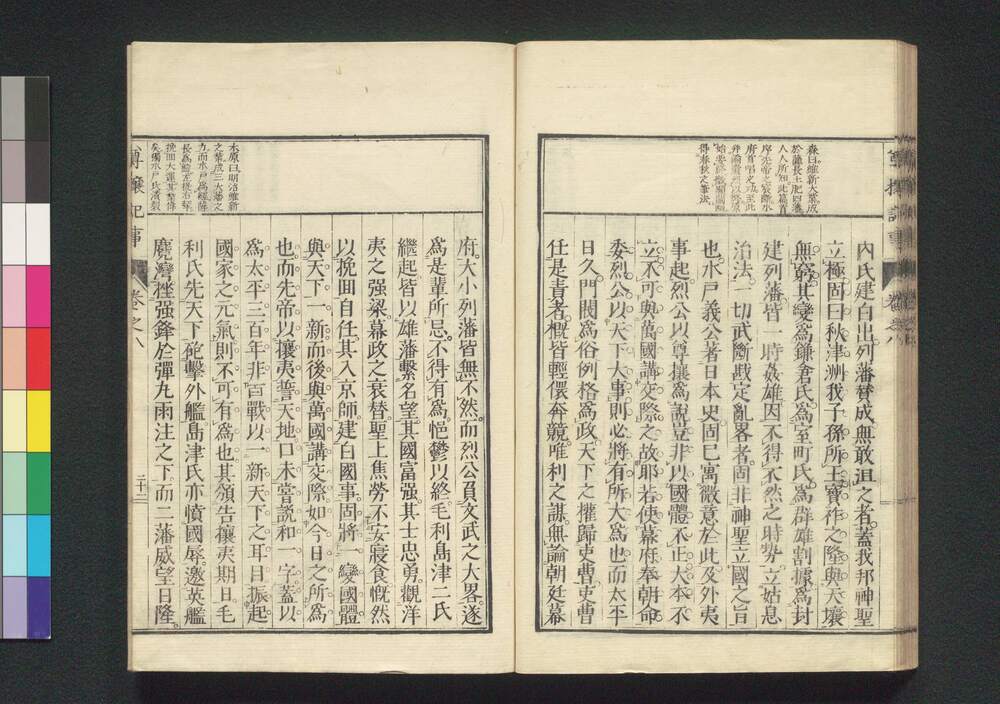 森曰維新大業成
於薩長土肥四藩
人人所知此篇首
序先帝之宸斷水
府首唱之功至此
得春秋之筆法
內氏建白出列藩贊成無敢沮之者蓋我邦神聖
立極固曰秋津洲我子孫所王寶祚之隆與天壤
無窮其變爲鎌倉氏爲室町氏爲群雄割據爲封
建列藩皆一時姦雄因不得不然之時勢立姑息
治法一切武斷戡定亂畧者固非神聖立國之旨
也水戶義公著日本史固已寓微意於此及外夷
事起烈公以尊攘爲說豈非以國體不正大本不
立不可與萬國講交際之故耶若使幕府奉朝命
委烈公以天下大事則必將有所大爲也而太平
日久門閥爲俗例格爲政天下之權歸吏曹吏曹
任是責者槪皆輕儇奔競唯利之謀無論朝廷幕
木原曰明治維新
之業成三大藩之
力而水戶爲經薩
長爲緯
挽回大運其
矣獨水戶氏
府大小列藩皆無不然而烈公負文武之大畧遂
爲是輩所忌不得有爲悒鬱以終毛利島津二氏
繼起皆以雄藩繫名望其國富强其士忠勇觀洋
夷之强梁幕政之衰替聖上焦勞不安寢食慨然
以挽回自任其入京師建白國事固將一變國體
與天下一新而後與萬國講交際如今日之所爲
也而先帝以攘夷誓天地口未嘗說和一字蓋以
爲太平三百年非百戰以一新天下之耳目振起
國家之元氣則不可有爲也其頒告攘夷期日毛
利氏先天下砲擊外艦島津氏亦憤國辱邀英艦
麑灣挫强鋒於彈丸雨注之下而二藩威望日隆
尊攘紀事
卷之八
二十二